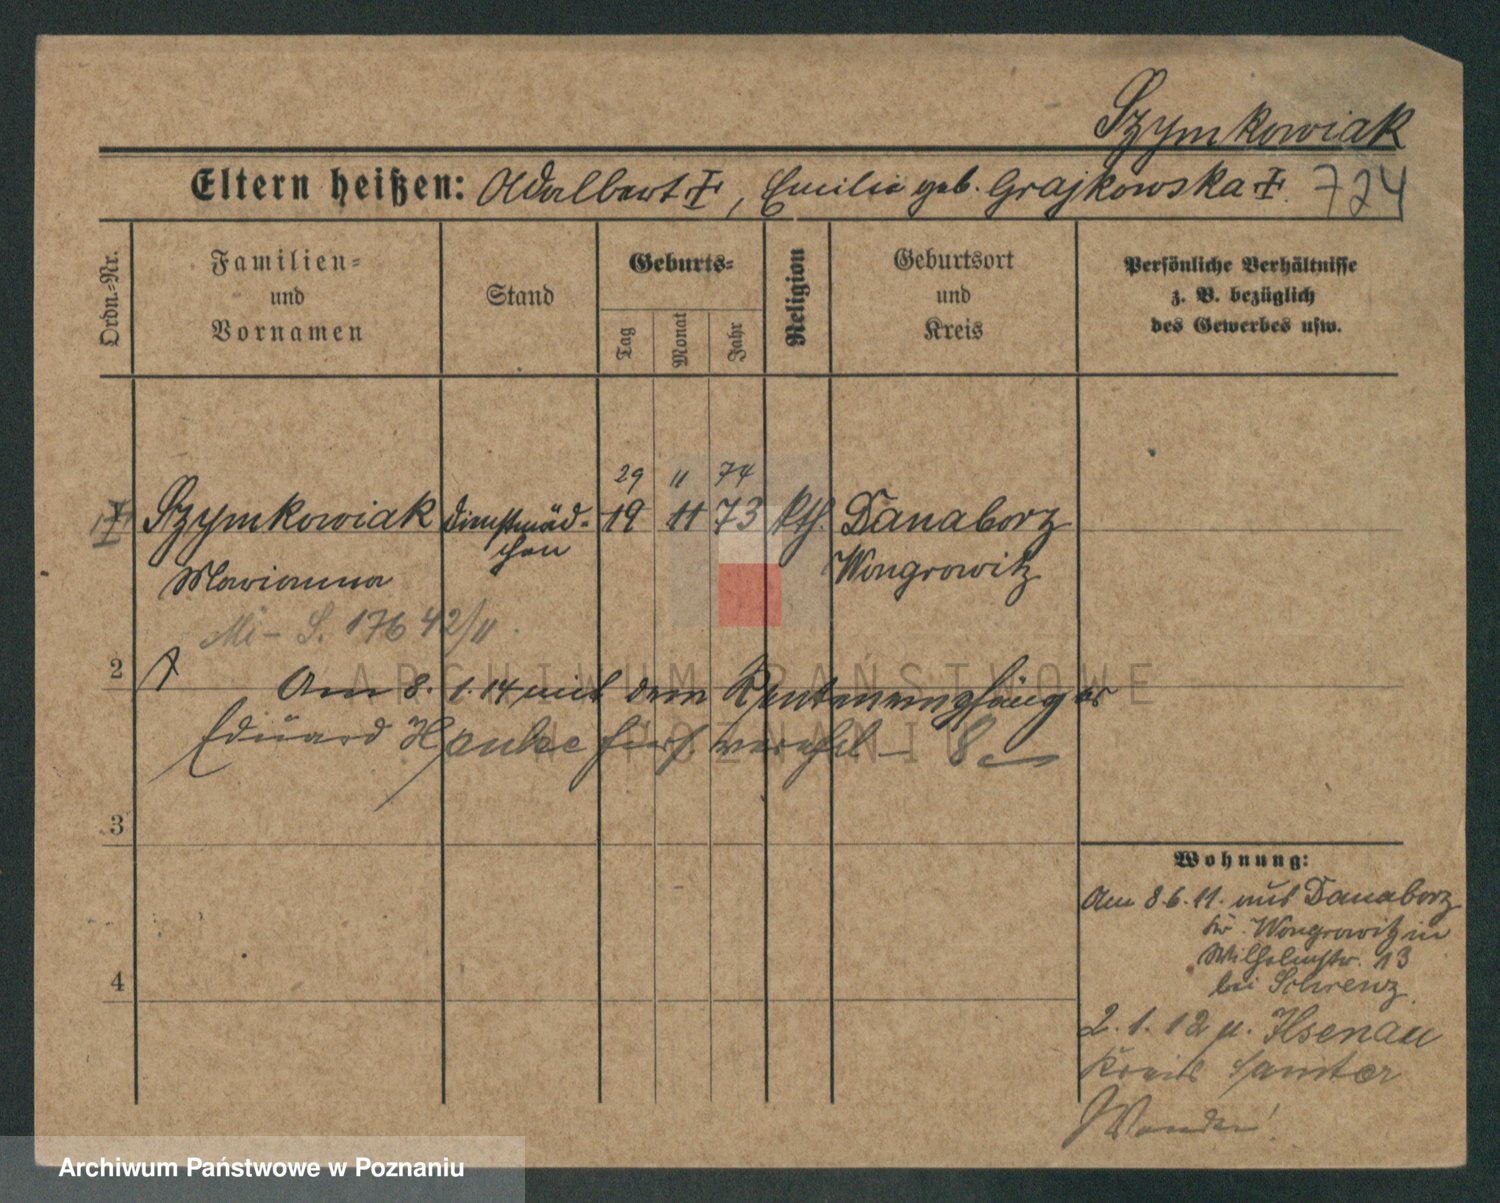 Szymkowiak
Eltern heißen: Adalbert †, Emilie geb. Grajkowska †. 724
Ordn.-Nr.
Familien-
und
Vornamen
Stand
Geburts-
Tag
Monat
Jahr
Religion
Geburtsort
und
Kreis
Persönliche Verhältnisse
z. B. bezüglich
des Gewerbes usw.
29 11 74
Szymkowiak Dienstmäd- 19 11 73 kth. Danaborz
chen
Marianna Wongrowitz
Mi- S. 176 42/11
2
Am 8. 1. 14 mit dem Rentenempfänger
Eduard
3
Wohnung:
Am 8.6.11. aus Danaborz
Kr. Wongrowitz in
Wilhelmstr. 13
bei Schrenz
4
2. 1. 12 n. Ilsenau
Kreis Samter
ARCHIWUM PAŃSTWOWE
W POZNANIU
Archiwum Państwowe w Poznaniu